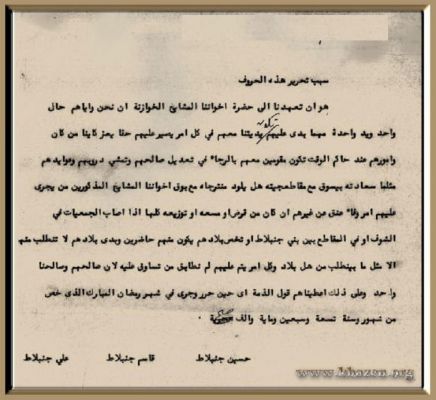 سبب تحرير هذه الحروف
هو ان تعهدنا الى حضرة اخواتنا المشايخ الخوازنة ان نحن واياهم حال
واحد ويد واحدة مهما بدى عليهم بديتنا معهم في كل امر يسير عليهم حقا يعز كاينا من كان
وابورهم عند حاكم الوقت تكون مقومين معهم بالرجاء في تعديل صالحهم وتمشي دروبهم وعوايدهم
مثلما سعادته بيسوق مع مقاطعجيته هل بلاد منترجاه مع بوق اخواتنا المشايخ المذكورين من يجرى
عليهم امر وفاء عنق عن غيرهم ان كان من قرض او سعه او توزيعه كلها اذا اصاب الجمعيات في
الشوف او في المقاطع بين بني جنبلاط او تخص بلادهم يكون منهم حاضرين وبدى بلادهم لا تتطلب منهم
الا مثل ما بينطلب من هل بلاد وكل امر يتم عليهم لم نطابق من تساوق عليه لان صالحهم وصالحنا
واحد وعلى ذلك اعطيناهم قول الذمة اى حين حرر وجرى في شهر رمضان المبارك الذى خص
من شهور وسنة تسعة وسبعين وماية والف هجرية
حسين جنبلاط قاسم جنبلاط علي جنبلاط
www.khazen.org